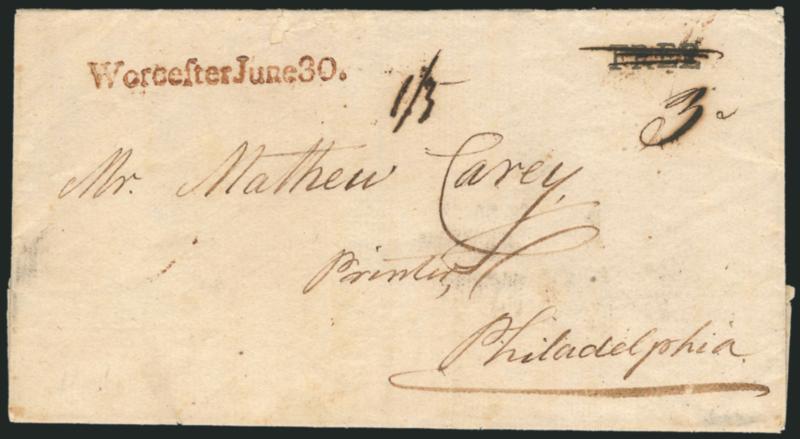 WorceſterJune30.
FREE
1/3
3
Mr. Mathew Carey,
Printer,
Philadelphia.